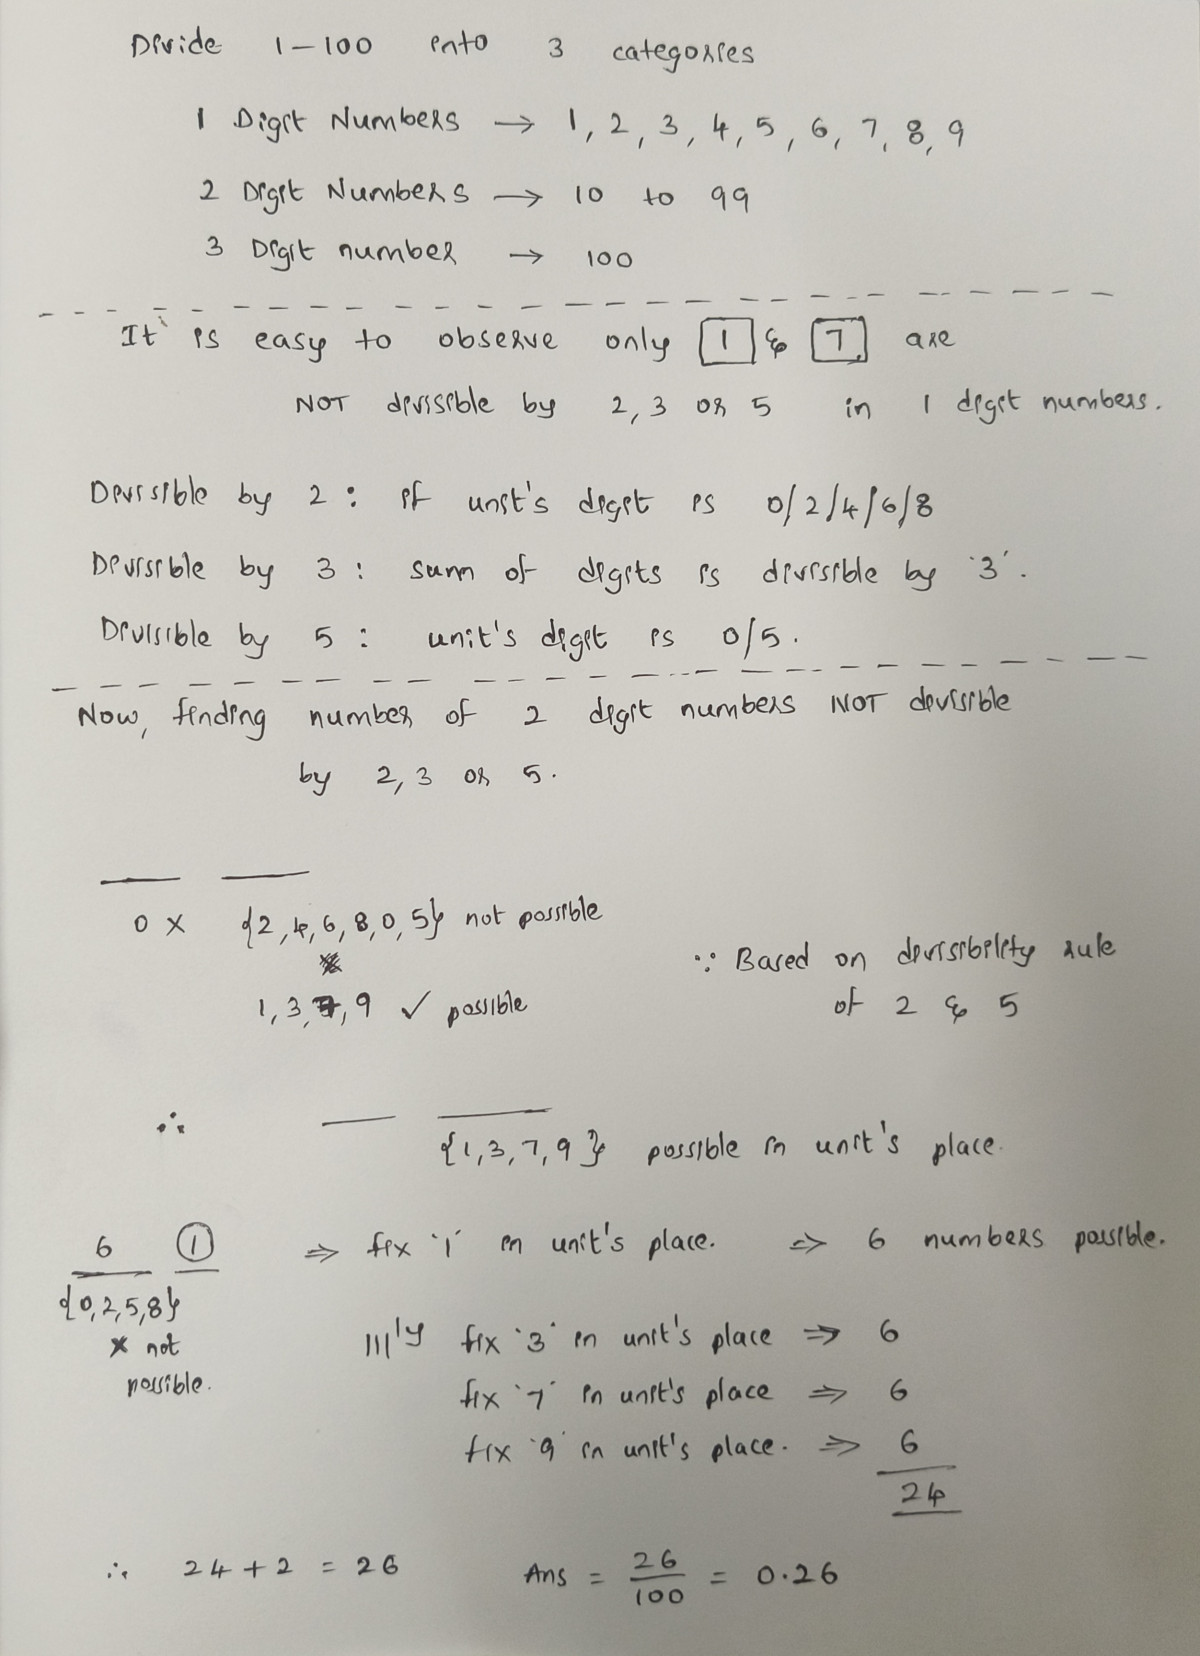 Divide 1 - 100 into 3 categories
1 Digit Numbers → 1, 2, 3, 4, 5, 6, 7, 8, 9
2 Digit Numbers → 10 to 99
3 Digit number → 100
It is easy to observe only 1 & 7 are
NOT divisible by 2, 3 or 5 in 1 digit numbers.
Divisible by 2 : if unit's digit is 0/2/4/6/8
Divisible by 3 : sum of digits is divisible by '3'.
Divisible by 5 : unit's digit is 0/5.
Now, finding number of 2 digit numbers NOT divisible
by 2, 3 or 5.
0 × {2, 4, 6, 8, 0, 5} not possible
1, 3, 7, 9 ✓ possible
∵ Based on divisibility rule
of 2 & 5
∴ {1, 3, 7, 9} possible in unit's place.
6 1 ⇒ fix '1' in unit's place. ⇒ 6 numbers possible.
{0, 2, 5, 8}
× not
possible.
|||ly fix '3' in unit's place ⇒ 6
fix '7' in unit's place ⇒ 6
fix '9' in unit's place. ⇒ 6
24
∴ 24 + 2 = 26 Ans = 26/100 = 0.26